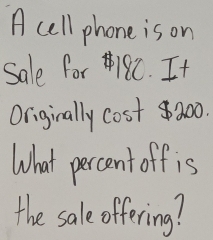 A cell phone is on
Sale for $180. It
Originally cost $200.
What percent off is
the sale offering?